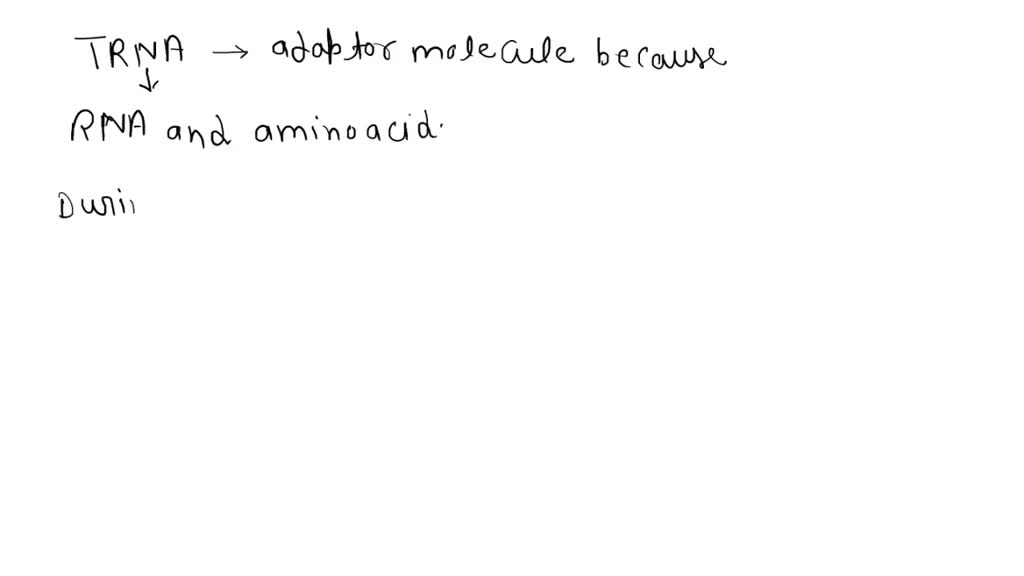 TRNA → adaptor molecule because
↓
RNA and aminoacid.
Duri